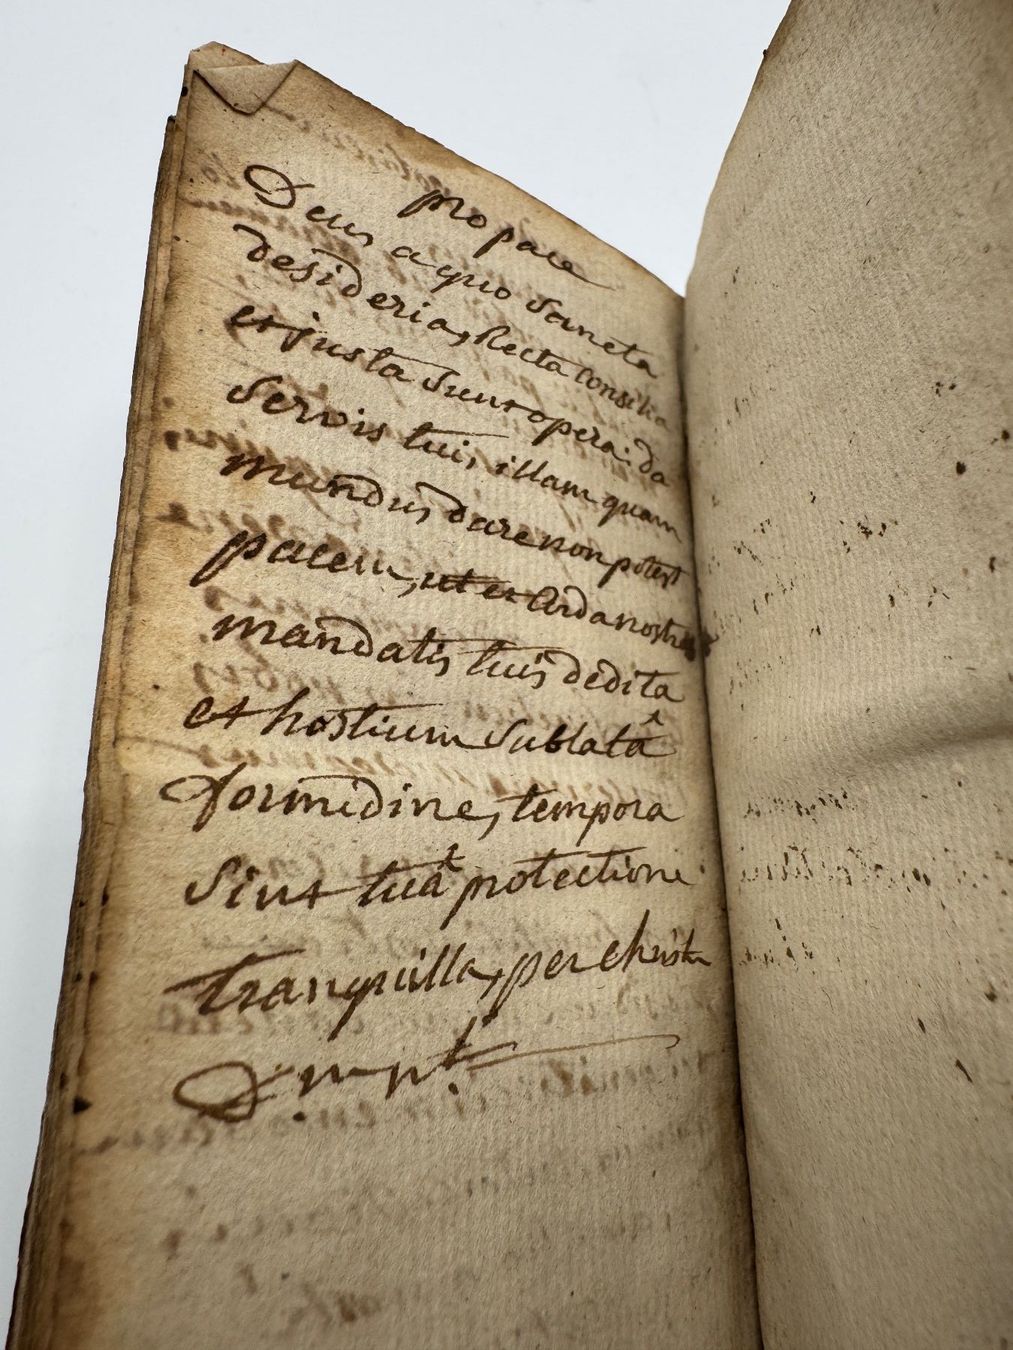 pro pace
Deus a quo Sancta
desideria, Recta Consilia
et justa Sunt opera: da
Servis tuis illam quam
mundus dare non potest
pacem, ut et Corda nostra
mandatis tuis dedita
et hostium Sublatâ
formidine, tempora
Sint tuâ protectione
tranquilla, per christu
D. m nt.